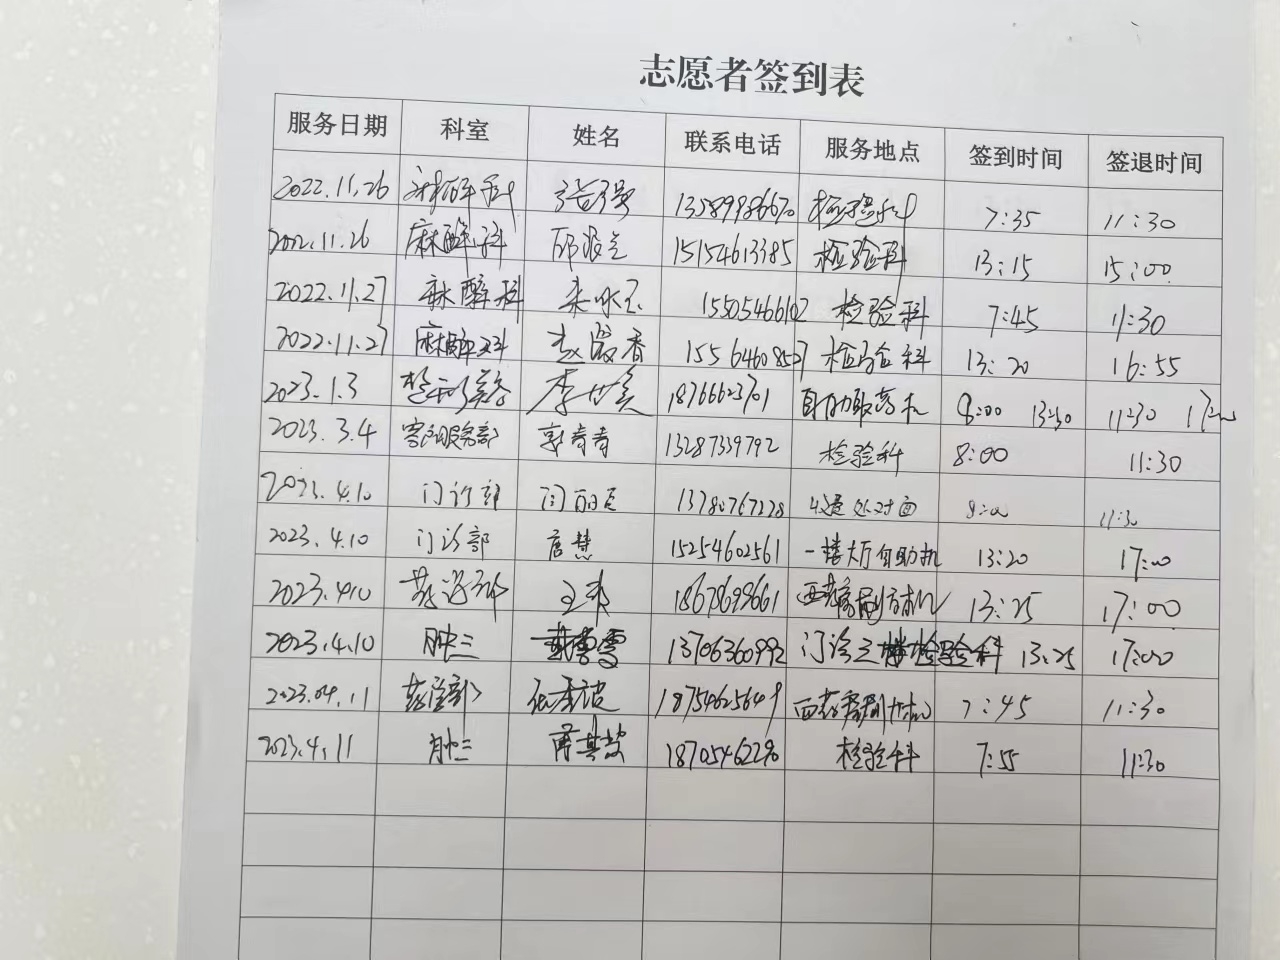 志愿者签到表
服务日期 科室 姓名 联系电话 服务地点 签到时间 签退时间
2022.11.26 麻醉科 13589986670 检验科 7:35 11:30
2022.11.26 麻醉科 15154613385 检验科 13:15 15:00
2022.11.27 麻醉科 15505466102 检验科 7:45 11:30
2022.11.27 麻醉科 15564608527 检验科 13:20 16:55
2023.1.3 18766623701 自助取药机 8:00 13:30 11:30 17:00
2023.3.4 客户服务部 郭青青 13287339792 检验科 8:00 11:30
2023.4.10 门诊部 13780767228 对面 8:00 11:30
2023.4.10 门诊部 唐慧 15254602561 一楼大厅自助机 13:20 17:00
2023.4.10 18678698661 13:25 17:00
2023.4.10 肿三 13706360992 门诊三楼检验科 13:25 17:00
2023.04.11 18754625649 7:45 11:30
2023.4.11 肿三 18705462290 检验科 7:55 11:30